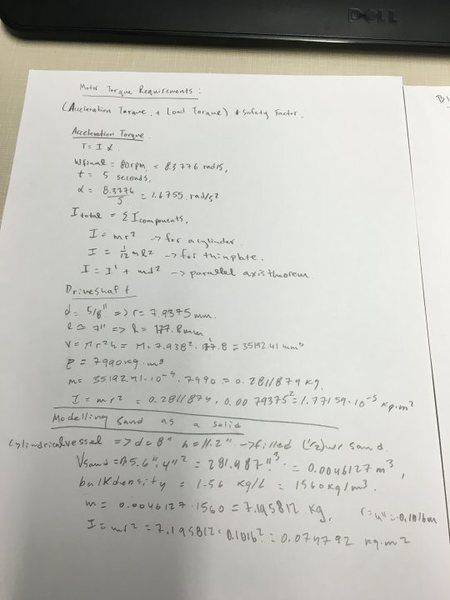 DELL
Motor Torque Requirements:
(Acceleration Torque + Load Torque) * Safety Factor.
Acceleration Torque
τ = I α
ωfinal = 80rpm = 8.3776 rad/s,
t = 5 seconds,
α = 8.3776/5 = 1.6755 rad/s²
Itotal = Σ Icomponents,
I = mr² -> for a cylinder
I = 1/12 ml² -> for thin plate.
I = I' + md² -> parallel axis theorem
Driveshaft
d = 5/8" => r = 7.9375 mm.
l = 7" => l = 177.8mm
V = πr²h = π·7.938²·177.8 = 35192.41 mm³
ρ = 7990 kg·m³
m = 35192.41·10⁻⁹·7990 = 0.2811879 kg.
I = mr² = 0.2811879·0.0079375² = 1.77159·10⁻⁵ kg·m²
Modelling sand as a solid
Cylindrical vessel => d=8" h=11.2" -> filled (1/2) w/ sand.
Vsand = π5.6"·4"² = 281.487"³ = 0.0046127 m³,
bulk density = 1.56 kg/L = 1560 kg/m³.
m = 0.0046127·1560 = 7.195812 kg, r=4"=0.1016m
I = mr² = 7.195812·0.1016² = 0.074792 kg·m²